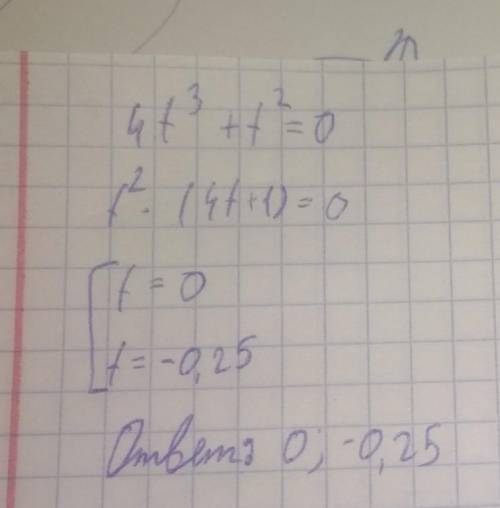 4t³ + t² = 0
t² · (4t+1) = 0
t = 0
t = -0,25
Ответ: 0; -0,25